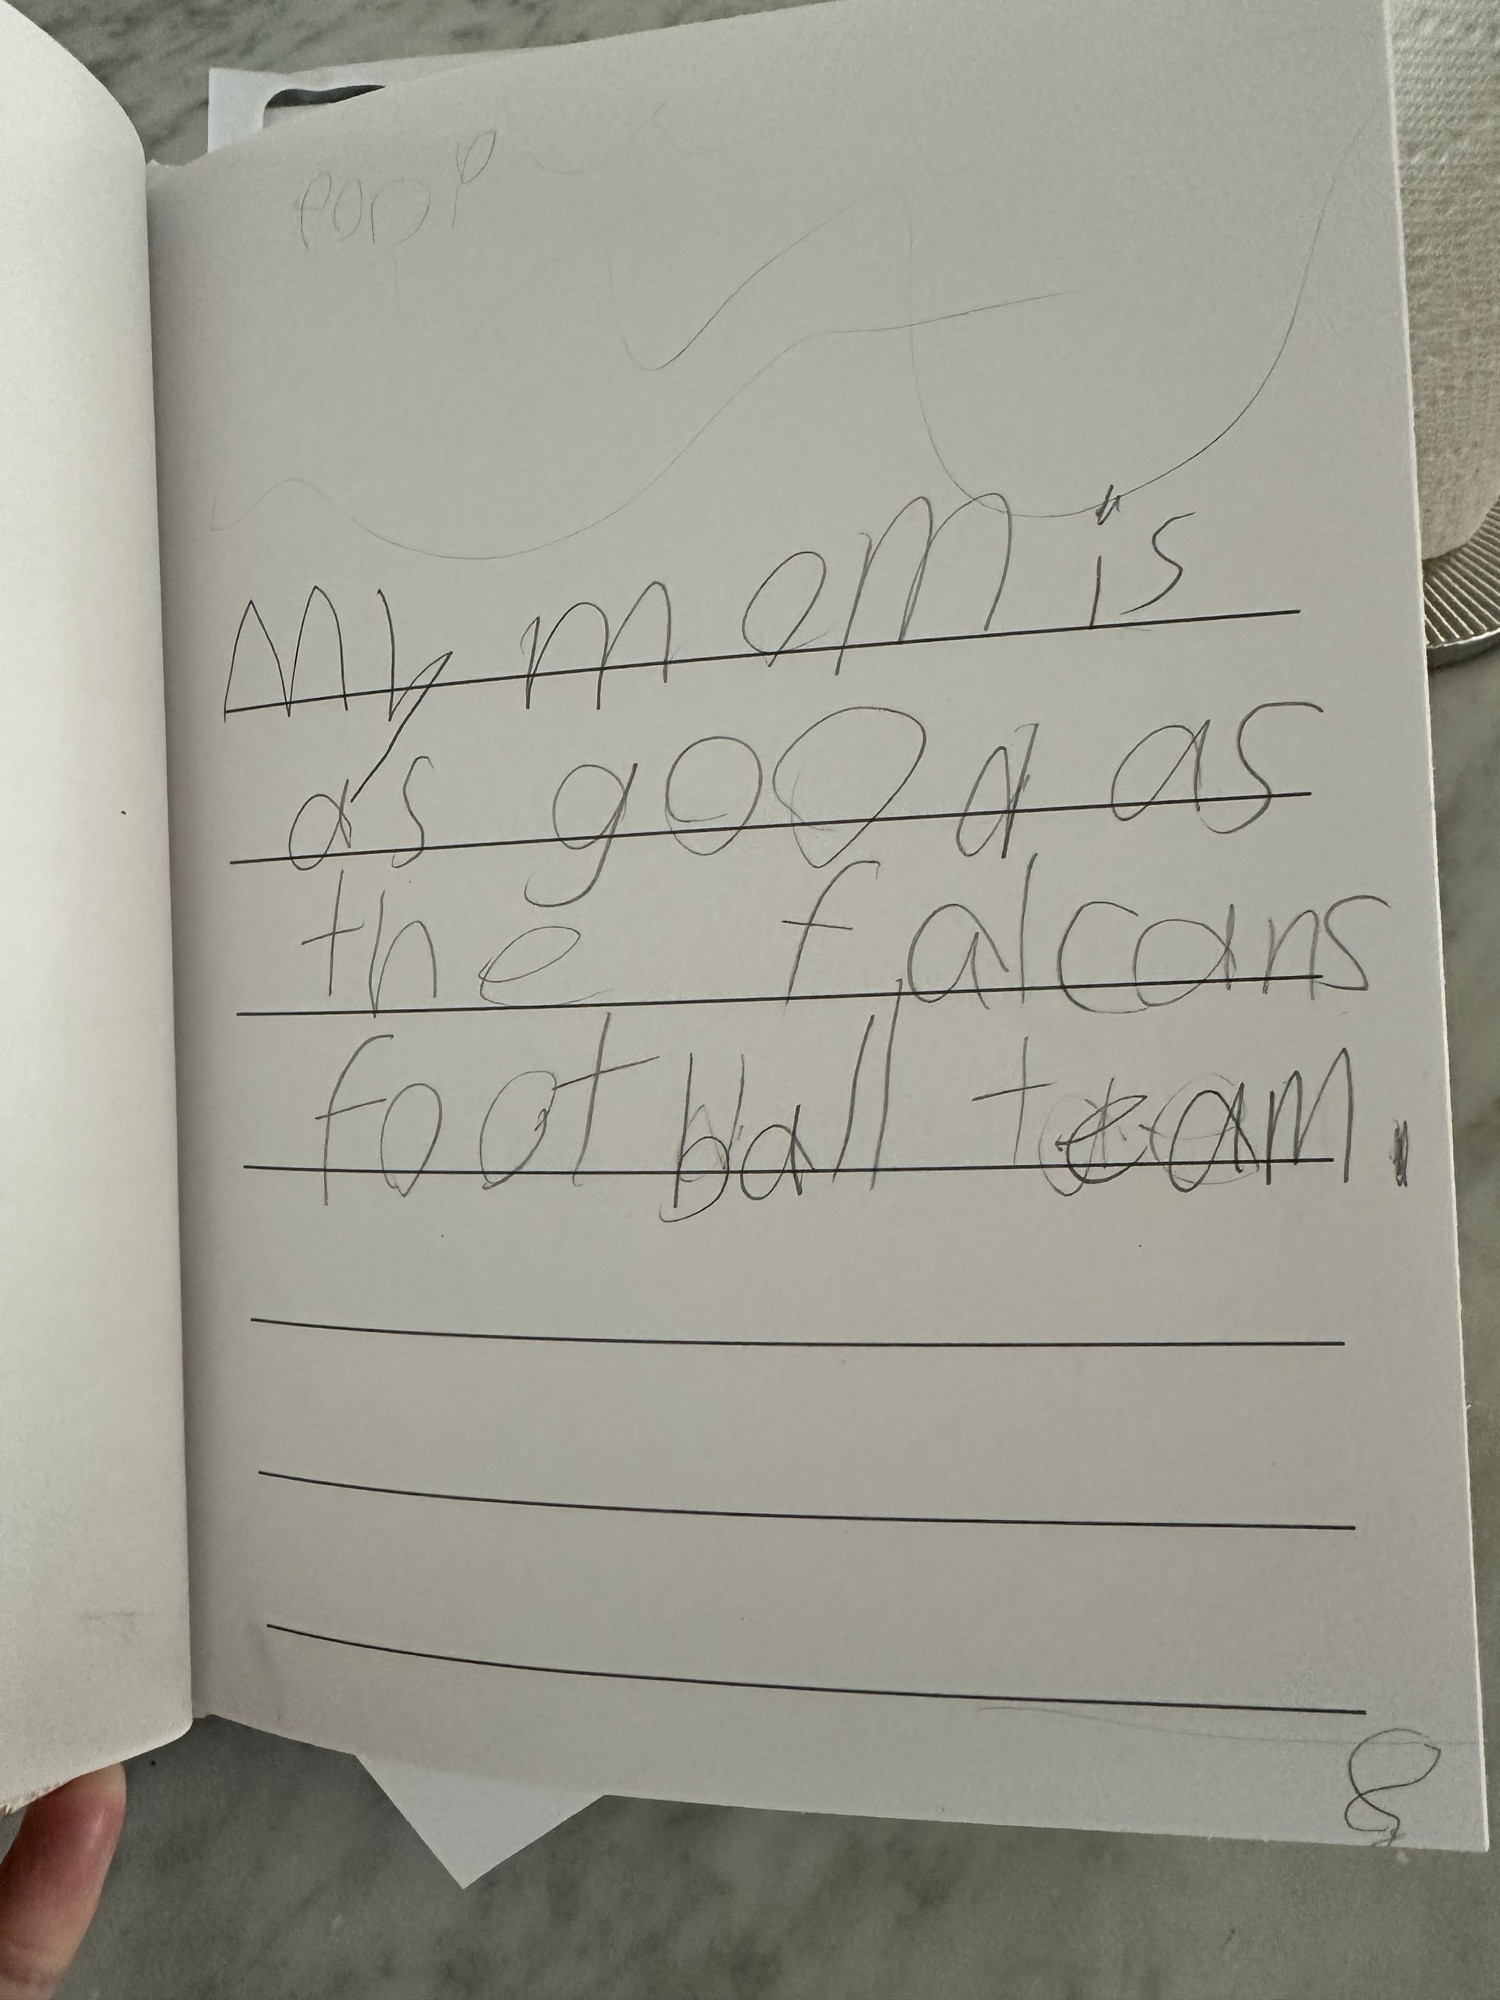 My mom is
as good as
the falcans
foot ball team.
8